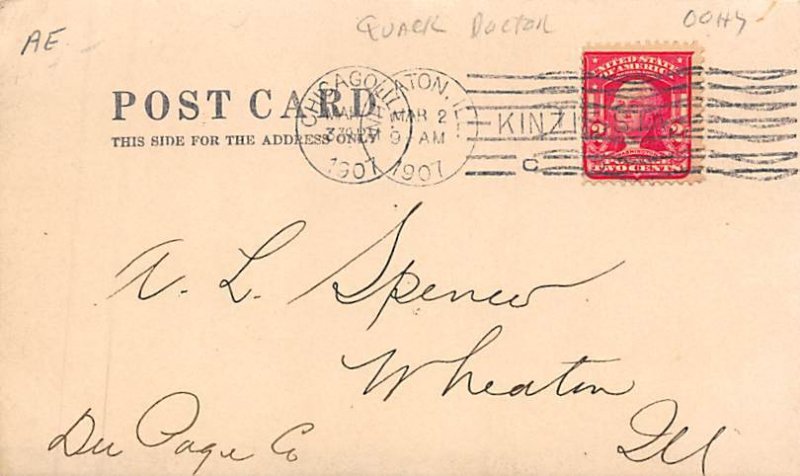 AE QUACK DOCTOR
POST CARD
THIS SIDE FOR THE ADDRESS ONLY
CHICAGO, ILL.
MAR
1907
WHEATON, ILL.
MAR 2
9 AM
1907
KINZIE
C
UNITED STATES
OF AMERICA
2 2
WASHINGTON
POSTAGE
TWO CENTS
A. L. Spencer
Wheaton
Du Page Co Ill